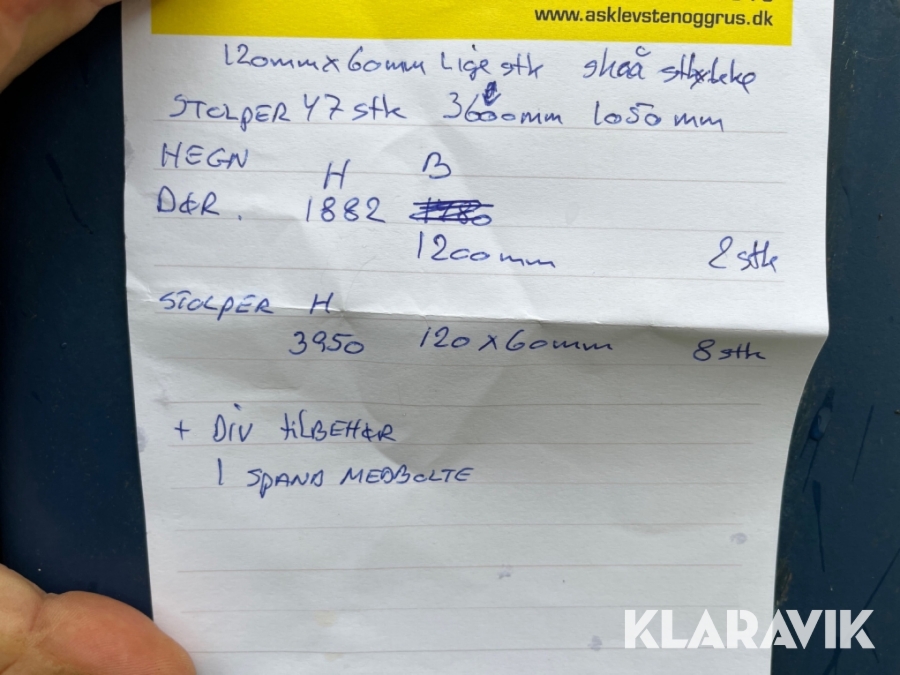 www.asklevstenoggrus.dk
120mm x 60mm Lige stk skrå
STOLPER 47 stk 3600mm 1050 mm
HEGN H B
DØR. 1882
1200mm 2 stk
STOLPER H
3950 120 x 60mm 8 stk
+ DIV tilBEHØR
1 SPAND MED BOLTE
KLARAVIK